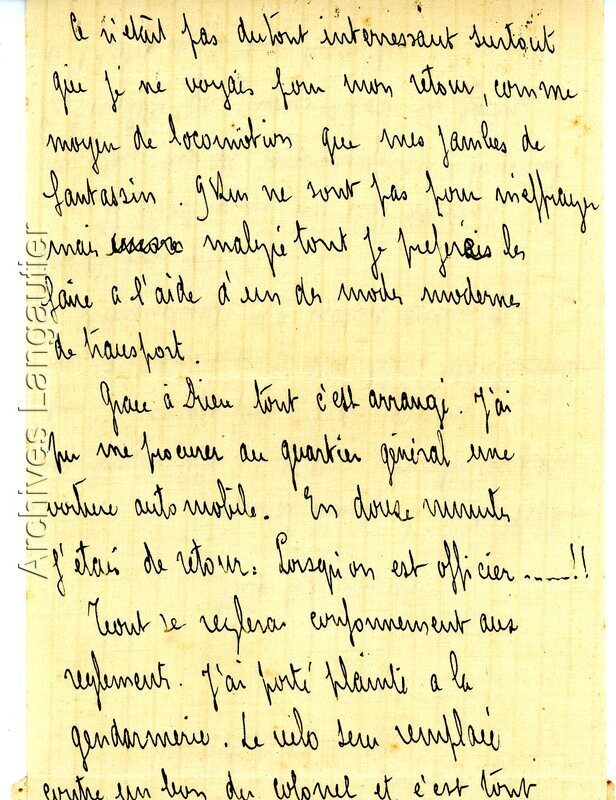 Ce n'était pas du tout interressant surtout
que je ne voyais pour mon retour, comme
moyen de locomotion que mes jambes de
fantassin. 9 Km ne sont pas pour m'effrayer
mais malgré tout je preferais les
faire a l'aide d'un des modes modernes
de transport.
Grace à Dieu tout c'est arrangé. J'ai
pu me procurer au quartier général une
voiture automobile. En douze minutes
j'étais de retour. Lorsqu'on est officier ......!!
Tout se reglera conformement aux
reglements. J'ai porté plainte a la
gendarmerie. Le velo sera remplacé
contre un bon du colonel et c'est tout
Archives Langautier